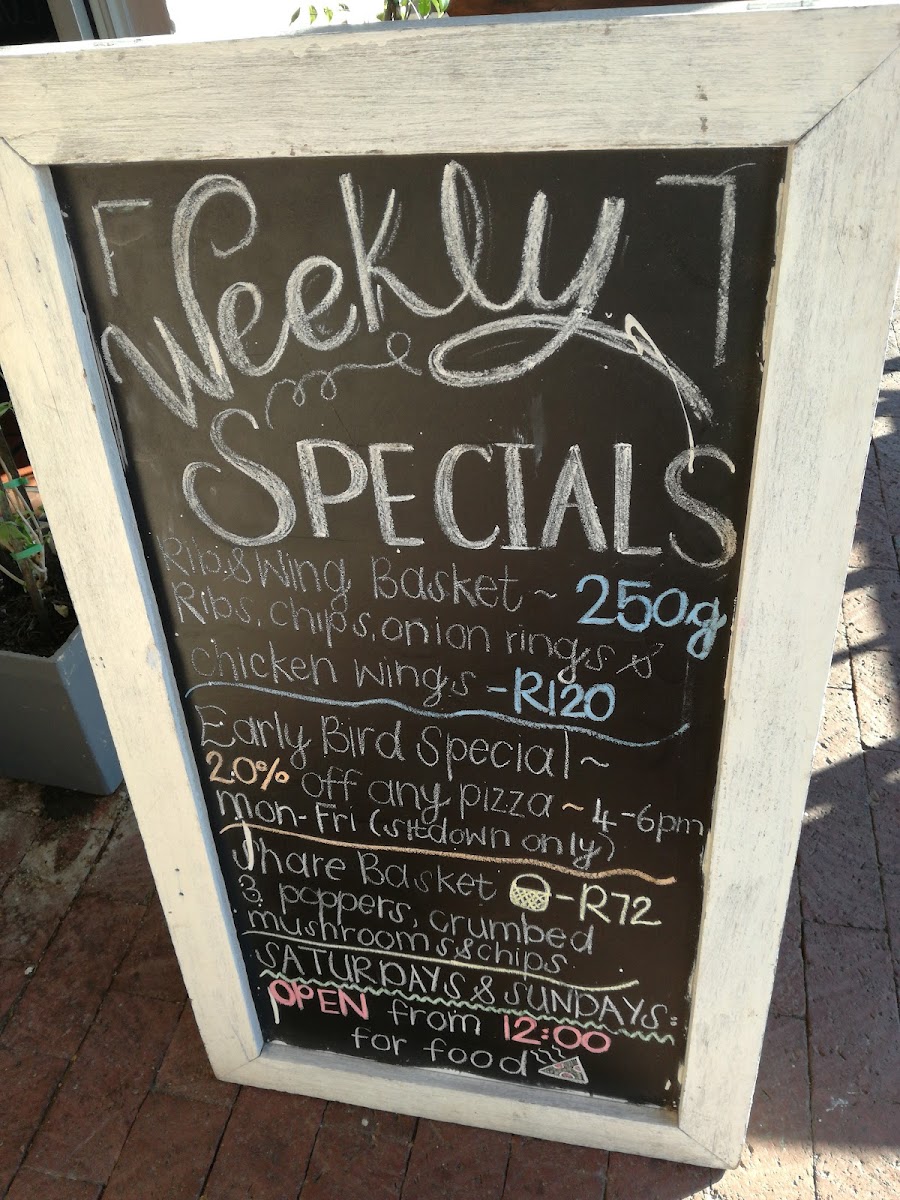 Weekly
SPECIALS
Rib & Wing Basket ~ 250g
Ribs, chips, onion rings &
chicken wings - R120
Early Bird Special ~
20% off any pizza ~ 4-6pm
mon-Fri (sitdown only)
Share Basket - R72
3 poppers, crumbed
mushrooms & chips
SATURDAYS & SUNDAYS:
OPEN from 12:00
for food